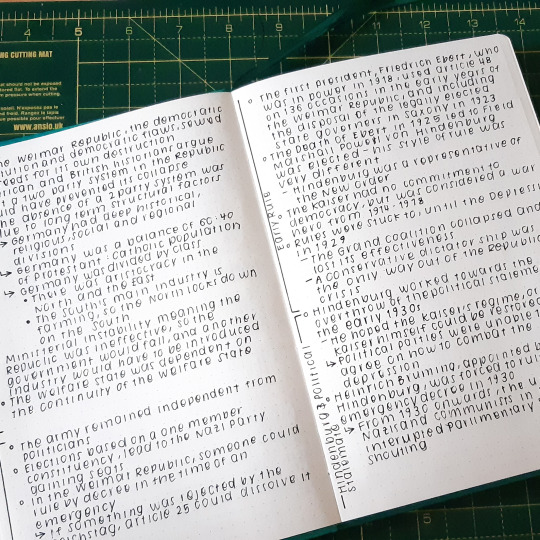 4
5
11
12
13
14
NG CUTTING MAT
www.anslo.uk
he Weimar Republic, the democratic
and democratic flaws, sowed
eeds for its own destruction
ican and British historians argue
g a two party system in the Republic
uld have prevented its collapse
he absence of a 2 party system was
ue to long term structural factors
→ Germany had deep historical,
religious, social and regional
divisions
→ Germany was a balance of 60:40
of protestant:catholic population
→ Germany was divided by class
• There was aristocracy in the
North and the East
• The South's main industry is
farming, so the North looks down
on the South
Ministerial instability meaning the
Republic was ineffective, so the
government would fall, and another
industry would have to be introduced
The welfare state was dependent on
the continuity of the welfare state
The army remained independent from
politicians
Elections based on a one member
constituency, lead to the Nazi Party
gaining seats
In the Weimar Republic, someone could
rule by decree in the time of an
emergency
→ If something was rejected by the
eichstag, article 25 could dissolve it
The first president, Friedrich Ebert, who
was in power in 1918, used article 48
on 136 occasions in the early years of
the Weimar Republic and including
the disposal of the legally elected
state governors in Saxony in 1923
The Death of Ebert in 1925 led to Field
Marshall Powell V. Hindenburg
was elected - his style of rule was
very different
- Hindenburg was a representative of
the New Order
The Kaiser had no commitment to
democracy, but was considered a war
hero from 1914-1918
Rules were stuck to, until the Depressi
in 1929
- The Grand Coalition collapsed and
lost its effectiveness
- A conservative dictatorship was
the only way out of the republic
crisis
Hindenburg worked towards the
overthrow of the political
the early 1930s
→ He hoped the Kaisers regime, or
Kaiser himself could be restored
→ Political parties were unable t
agree on how to combat the
depression
Heinrich Bruning, appointed b
Hindenburg, was forced to rul
emergency decree in 1930
→ From 1930 onwards, the
Nazis and communists in
interupted parlimentary
shouting
Early Rule
Hindenburg & political